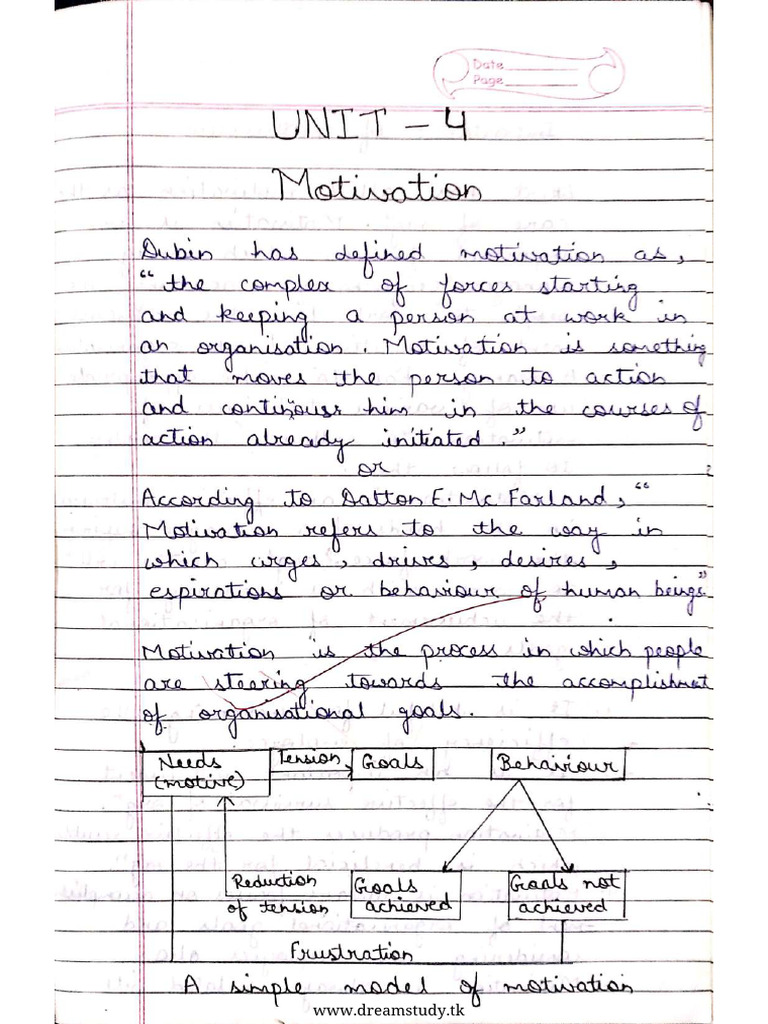 Date
Page
UNIT - 4
Motivation
Dubin has defined motivation as,
" the complex of forces starting
and keeping a person at work in
an organisation. Motivation is something
that moves the person to action
and continous him in the courses of
action already initiated "
or
According to Datton E. Mc Farland, "
Motivation refers to the way in
which urges, drives, desires,
espirations or behaviour of human beings"
Motivation is the process in which people
are stearing towards the accomplishment
of organisational goals.
Needs (motive)
Tension
Goals
Behaviour
Reduction of tension
Goals achieved
Goals not achieved
Frustration
A simple model of motivation
www.dreamstudy.tk